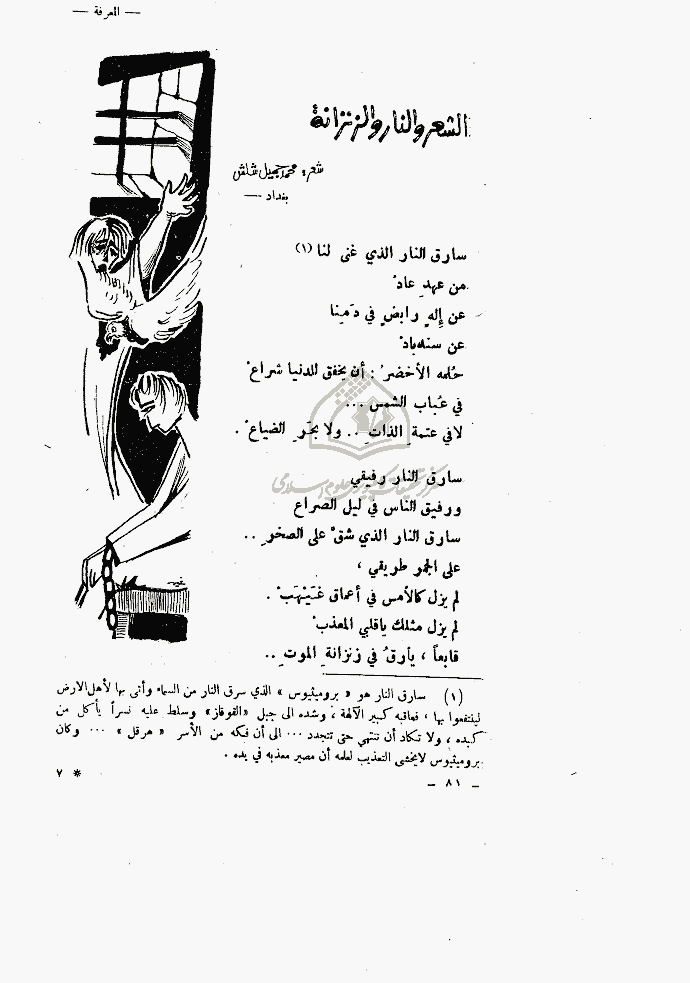 — المعرفة —
الشعر والنار والزنزانة
شعر: محمد جميل شلش
بغداد —
سارق النار الذي غنى لنا (١)
من عهدِ عادْ
عن إلهٍ رابضٍ في دَمِنا
عن سندبادْ
حُلمه الأخضرُ : أن يخفق للدنيا شراعْ
في عُباب الشمس ...
لا في عتمةِ الذاتِ .. ولا بحرِ الضياعْ .
سارق النار رفيقي
ورفيق الناس في ليل الصراع
سارق النار الذي شقّ على الصخرِ ..
على الجمر طريقي ،
لم يزل كالأمس في أعماق غَيْهَبْ .
لم يزل مثلك ياقلبي المعذبْ
قابعاً ، يأرقُ في زنزانةِ الموتِ ..
(١) سارق النار هو « بروميثيوس » الذي سرق النار من السماء وأتى بها لأهل الارض
لينتفعوا بها ، فعاقبه كبير الآلهة ، وشده الى جبل «القوقاز» وسلط عليه نسراً يأكل من
كبده ، ولا تكاد أن تنتهي حتى تتجدد ... الى أن فكه من الأسر « هرقل » ... وكان
بروميثيوس لايخشى التعذيب لعلمه أن مصير معذبه في يده .
* ٧
– ٨١ –